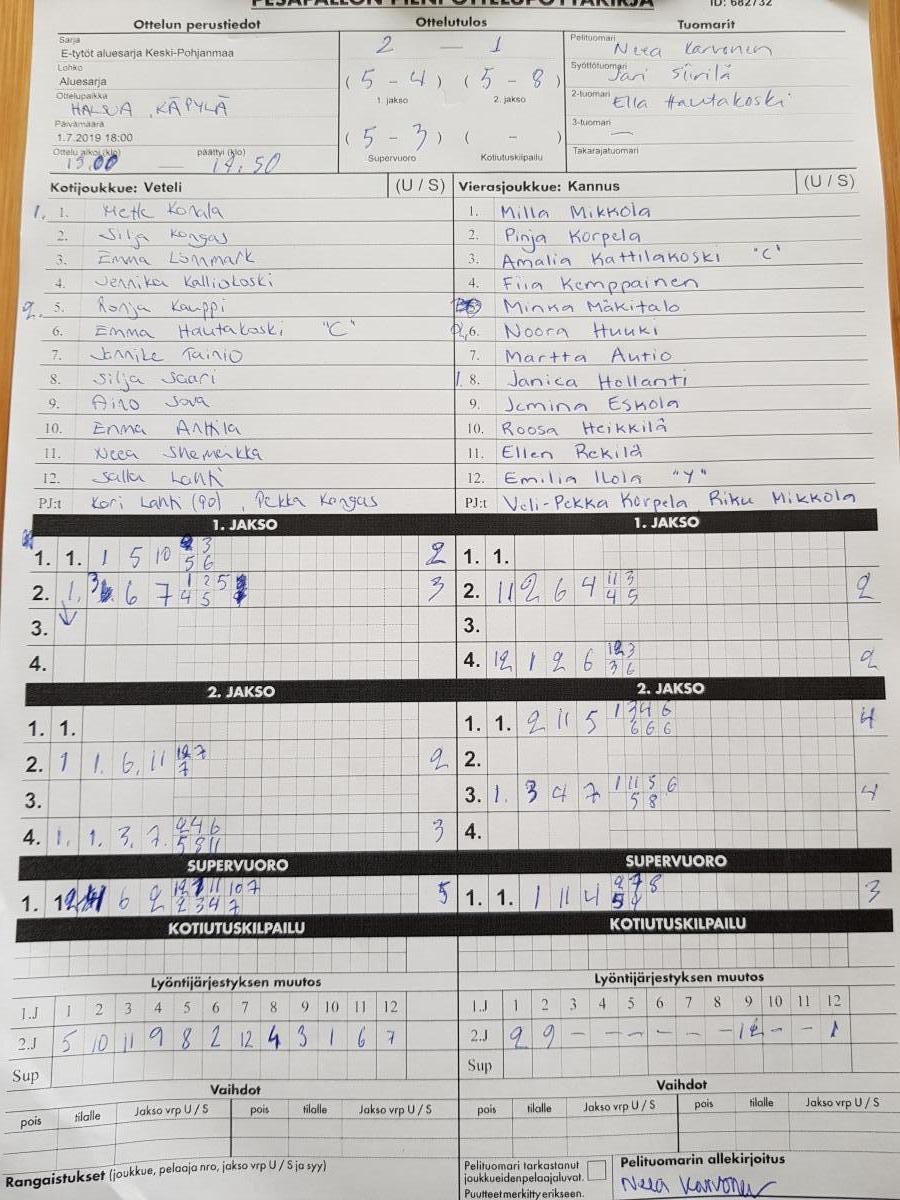 PESÄPALLON PIENI OTTELUPÖYTÄKIRJA ID: 682732
Ottelun perustiedot
Sarja
E-tytöt aluesarja Keski-Pohjanmaa
Lohko
Aluesarja
Ottelupaikka
HALSUA, KÄPYLÄ
Päivämäärä
1.7.2019 18:00
Ottelu alkoi (klo) päättyi (klo)
13.00 — 14.50
Ottelutulos
2 — 1
(5 - 4) (5 - 8)
1. jakso 2. jakso
(5 - 3) ( - )
Supervuoro Kotiutuskilpailu
Tuomarit
Pelituomari
Neea Karvonen
Syöttötuomari
Jari Siirilä
2-tuomari
Ella Hautakoski
3-tuomari
—
Takarajatuomari
Kotijoukkue: Veteli (U / S)
1. 1. Konala
2. Silja Kangas
3. Emma Lönnmark
4. Jennika Kalliokoski
2. 5. Ronja Kauppi
6. Emma Hautakoski "C"
7. Jannike Tainio
8. Silja Saari
9. Aino
10. Emma Anttila
11. Neea Shemeikka
12. Salla Lahti
PJ:t Lahti (90), Pekka Kangas
Vierasjoukkue: Kannus (U / S)
1. Milla Mikkola
2. Pinja Korpela
3. Amalia Kattilakoski "C"
4. Fiia Kemppainen
Minka Mäkitalo
2. 6. Noora Huuki
7. Martta Autio
1. 8. Janica Hollanti
9. Jemina Eskola
10. Roosa Heikkilä
11. Ellen Rekilä
12. Emilia Ilola "Y"
PJ:t Veli-Pekka Korpela, Riku Mikkola
1. JAKSO
1. 1. 1 5 10 3
5 6 2
2. 1. 3 6 7 1 2 5
4 5 3
3.
4.
1. JAKSO
1. 1.
2. 11 2 6 4 11 3
4 5 2
3.
4. 12 1 2 6 12 3
3 6 2
2. JAKSO
1. 1.
2. 1 1. 6, 11 12 7
7 2
3.
4. 1. 1. 3. 7. 2 4 6
5 8 11 3
2. JAKSO
1. 1. 2 11 5 1 3 4 6
6 6 6 4
2.
3. 1. 3 4 7 1 11 5 6
5 8 4
4.
SUPERVUORO
1. 6 2 11 10 7
2 3 4 7 5
SUPERVUORO
1. 1. 1 11 4 8
3
KOTIUTUSKILPAILU
KOTIUTUSKILPAILU
Lyöntijärjestyksen muutos
1.J 1 2 3 4 5 6 7 8 9 10 11 12
2.J 5 10 11 9 8 2 12 4 3 1 6 7
Sup
Lyöntijärjestyksen muutos
1.J 1 2 3 4 5 6 7 8 9 10 11 12
2.J 2 9 - - - - - - 12 - - 1
Sup
Vaihdot
pois tilalle Jakso vrp U / S pois tilalle Jakso vrp U / S
Vaihdot
pois tilalle Jakso vrp U / S pois tilalle Jakso vrp U / S
Rangaistukset (joukkue, pelaaja nro, jakso vrp U / S ja syy)
Pelituomari tarkastanut
joukkueiden pelaajaluvat.
Puutteet merkitty erikseen.
Pelituomarin allekirjoitus
Neea Karvonen